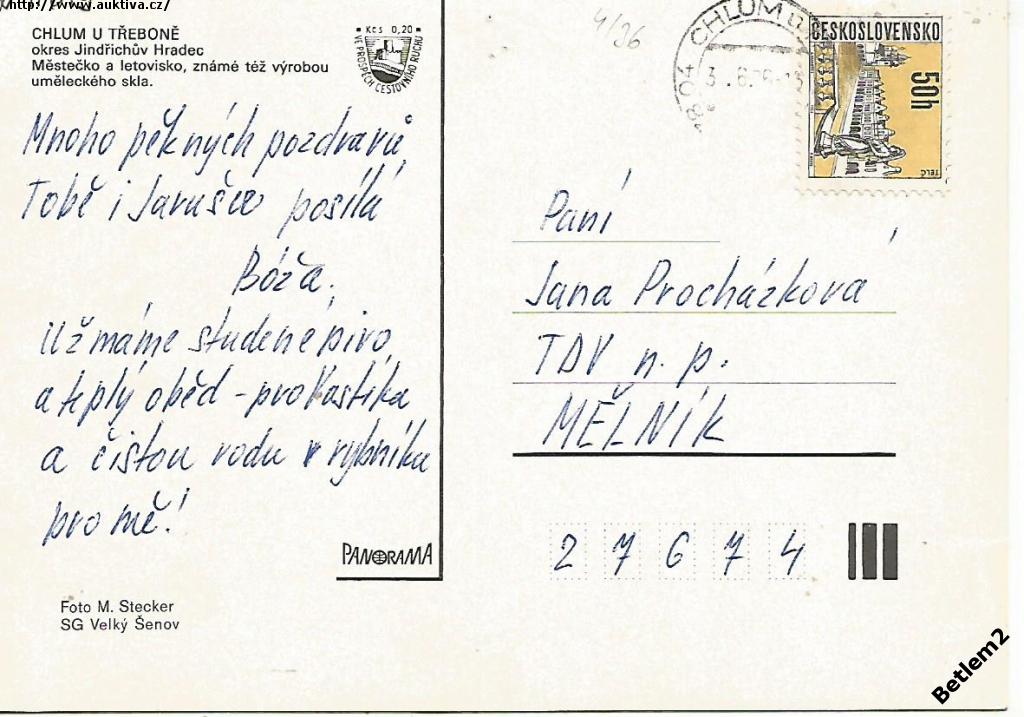 http://www.auktiva.cz/
CHLUM U TŘEBONĚ
okres Jindřichův Hradec
Městečko a letovisko, známé též výrobou
uměleckého skla.
Kčs 0,20
VE PROSPĚCH CESTOVNÍHO RUCHU
4/26
CHLUM U
ČESKOSLOVENSKO
50h
TELČ
Mnoho pěkných pozdravů,
Tobě i Jarušce posílá
Bóža.
Už máme studené pivo
a teplý oběd - pro Vastíka
a čistou vodu v rybníku
pro mě!
PANORAMA
Foto M. Stecker
SG Velký Šenov
Paní
Jana Procházková
TDV n. p.
MĚLNÍK
27674
Betlem2